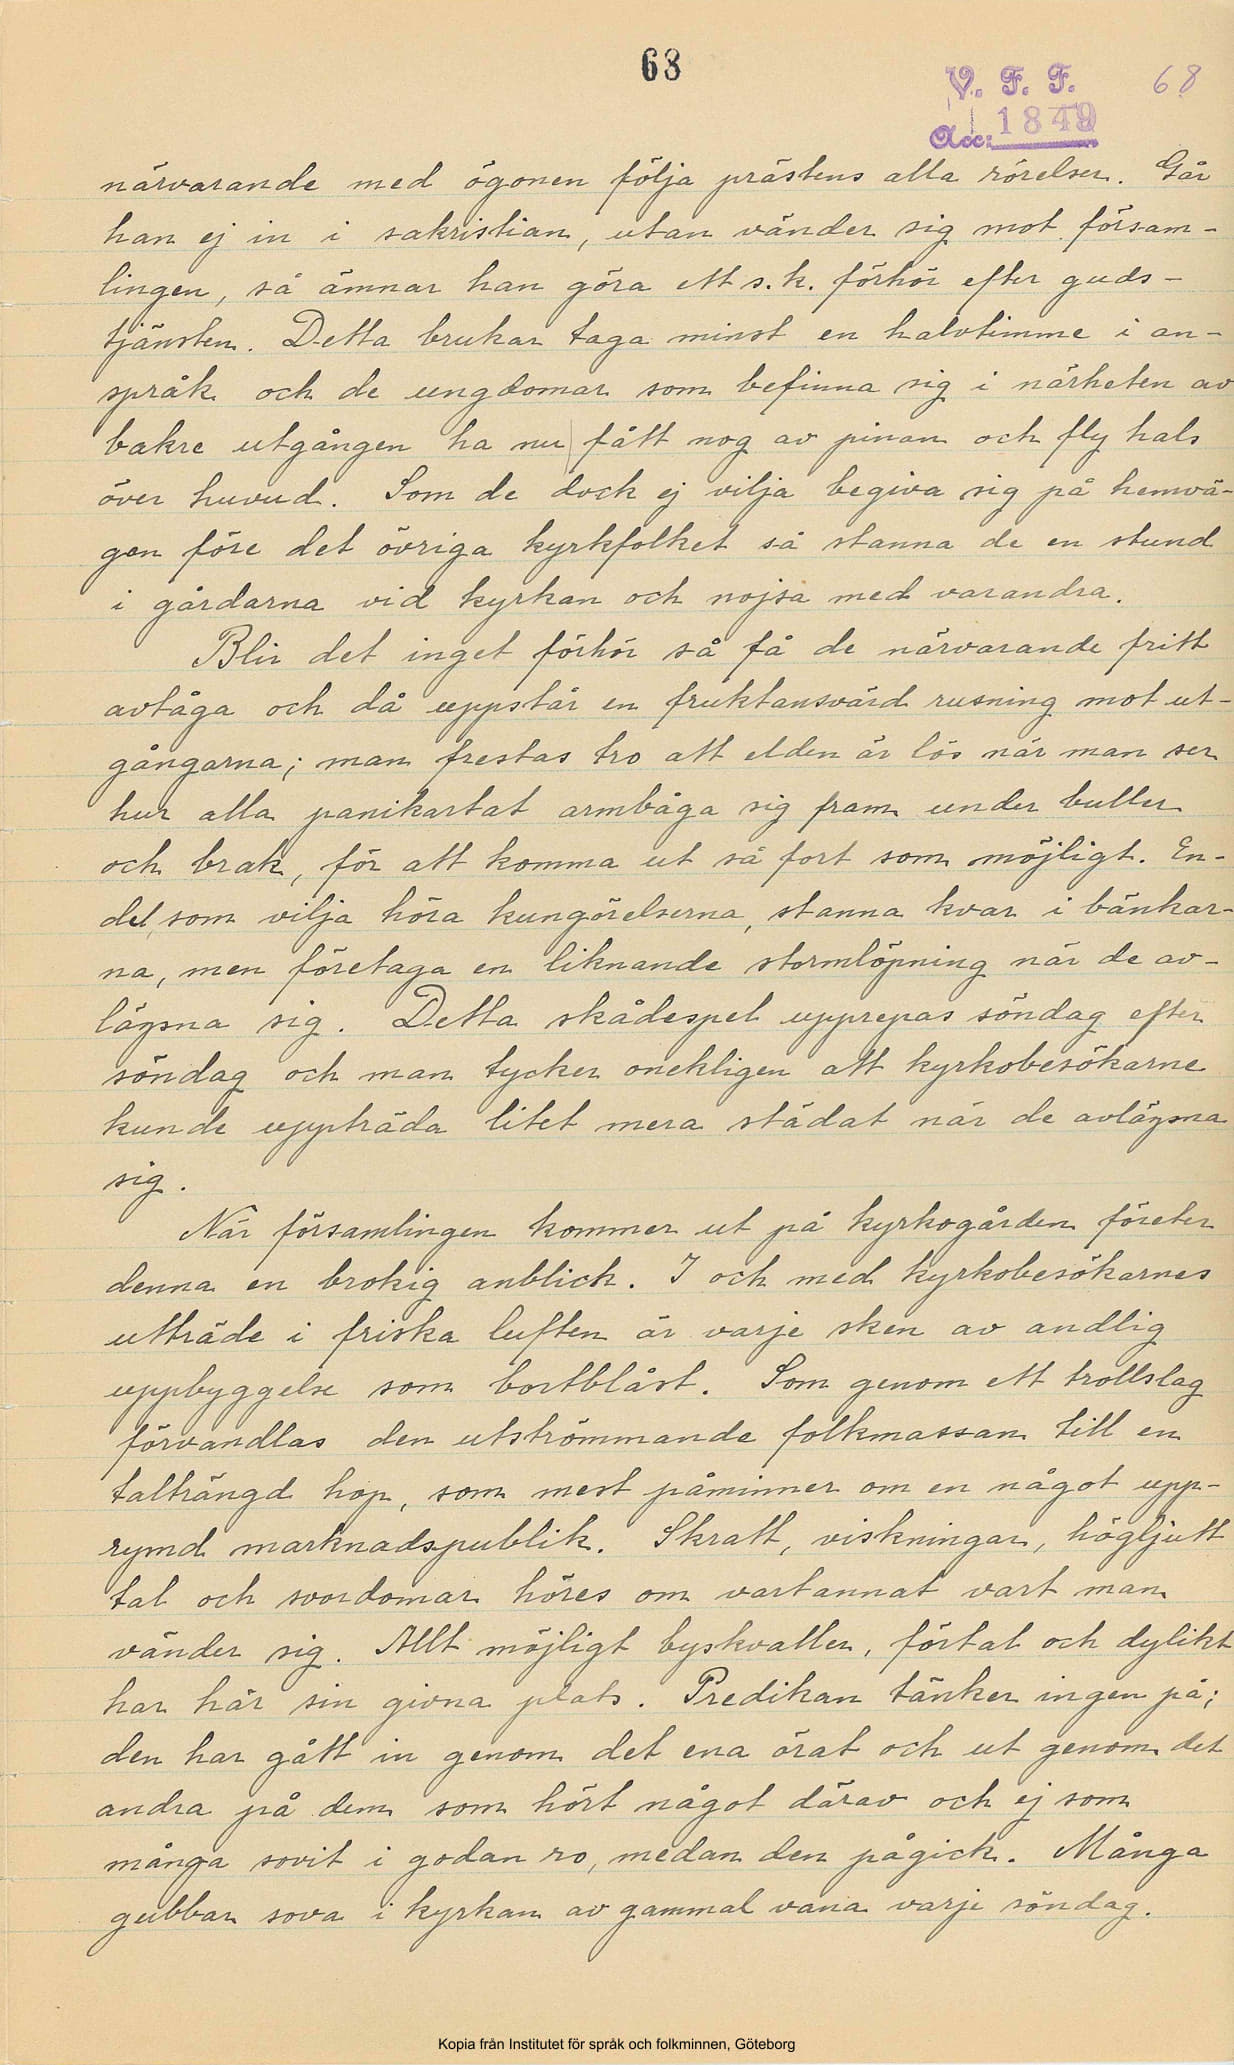 68
V. F. F.
68
Acc: 1849
närvarande med ögonen följa prästens alla rörelser. Går
han ej in i sakristian, utan vänder sig mot försam-
lingen, så ämnar han göra ett s.k. förhör efter guds-
tjänsten. Detta brukar taga minst en halvtimme i an-
språk och de ungdomar som befinna sig i närheten av
bakre utgången ha nu fått nog av pinan och fly hals
över huvud. Som de dock ej vilja begiva sig på hemvä-
gen före det övriga kyrkfolket så stanna de en stund
i gårdarna vid kyrkan och nojsa med varandra.
Blir det inget förhör så få de närvarande fritt
avtåga och då uppstår en fruktansvärd rusning mot ut-
gångarna; man frestas tro att elden är lös när man ser
hur alla panikartat armbåga sig fram under buller
och brak, för att komma ut så fort som möjligt. En-
del, som vilja höra kungörelserna, stanna kvar i bänkar-
na, men företaga en liknande stormlöpning när de av-
lägsna sig. Detta skådespel upprepas söndag efter
söndag och man tycker onekligen att kyrkobesökarne
kunde uppträda litet mera städat när de avlägsna
sig.
När församlingen kommer ut på kyrkogården företer
denna en brokig anblick. I och med kyrkobesökarnes
utträde i friska luften är varje sken av andlig
uppbyggelse som bortblåst. Som genom ett trollslag
förvandlas den utströmmande folkmassan till en
talträngd hop, som mest påminner om en något upp-
rymd marknadspublik. Skratt, viskningar, högljutt
tal och svordomar höres om vartannat vart man
vänder sig. Allt möjligt byskvaller, förtal och dylikt
har här sin givna plats. Predikan tänker ingen på;
den har gått in genom det ena örat och ut genom det
andra på dem som hört något därav och ej som
många sovit i godan ro, medan den pågick. Många
gubbar sova i kyrkan av gammal vana varje söndag.
Kopia från Institutet för språk och folkminnen, Göteborg